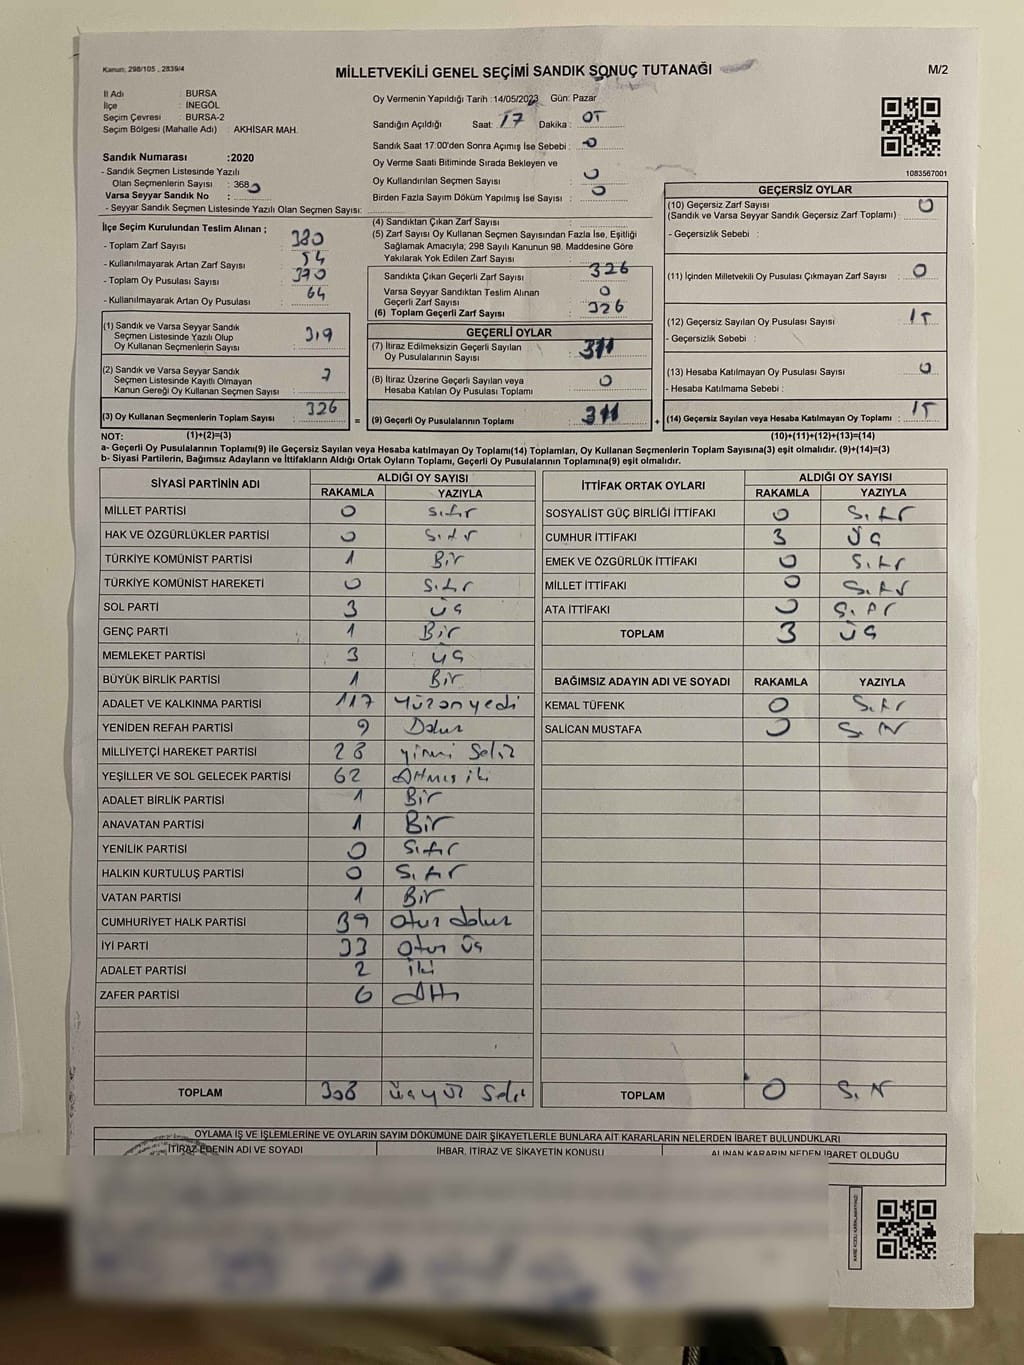 Kanun: 298/105 , 2839/4
MİLLETVEKİLİ GENEL SEÇİMİ SANDIK SONUÇ TUTANAĞI
M/2
İl Adı : BURSA
İlçe : İNEGÖL
Seçim Çevresi : BURSA-2
Seçim Bölgesi (Mahalle Adı) : AKHİSAR MAH.
Sandık Numarası :2020
- Sandık Seçmen Listesinde Yazılı
Olan Seçmenlerin Sayısı : 368
Varsa Seyyar Sandık No : 0
- Seyyar Sandık Seçmen Listesinde Yazılı Olan Seçmen Sayısı:
Oy Vermenin Yapıldığı Tarih :14/05/2023 Gün: Pazar
Sandığın Açıldığı Saat: 17 Dakika : 05
Sandık Saat 17:00'den Sonra Açımış İse Sebebi : 0
Oy Verme Saati Bitiminde Sırada Bekleyen ve
Oy Kullandırılan Seçmen Sayısı : 0
Birden Fazla Sayım Döküm Yapılmış İse Sayısı : 0
1083567001
İlçe Seçim Kurulundan Teslim Alınan ;
- Toplam Zarf Sayısı : 380
- Kullanılmayarak Artan Zarf Sayısı : 54
- Toplam Oy Pusulası Sayısı : 370
- Kullanılmayarak Artan Oy Pusulası : 64
(1) Sandık ve Varsa Seyyar Sandık
Seçmen Listesinde Yazılı Olup
Oy Kullanan Seçmenlerin Sayısı : 319
(2) Sandık ve Varsa Seyyar Sandık
Seçmen Listesinde Kayıtlı Olmayan
Kanun Gereği Oy Kullanan Seçmen Sayısı : 7
(3) Oy Kullanan Seçmenlerin Toplam Sayısı : 326
(4) Sandıktan Çıkan Zarf Sayısı :
(5) Zarf Sayısı Oy Kullanan Seçmen Sayısından Fazla İse, Eşitliği
Sağlamak Amacıyla; 298 Sayılı Kanunun 98. Maddesine Göre
Yakılarak Yok Edilen Zarf Sayısı :
Sandıkta Çıkan Geçerli Zarf Sayısı : 326
Varsa Seyyar Sandıktan Teslim Alınan
Geçerli Zarf Sayısı : 0
(6) Toplam Geçerli Zarf Sayısı : 326
GEÇERLİ OYLAR
(7) İtiraz Edilmeksizin Geçerli Sayılan
Oy Pusulalarının Sayısı : 311
(8) İtiraz Üzerine Geçerli Sayılan veya
Hesaba Katılan Oy Pusulası Toplamı : 0
= (9) Geçerli Oy Pusulalarının Toplamı : 311 +
GEÇERSİZ OYLAR
(10) Geçersiz Zarf Sayısı : 0
(Sandık ve Varsa Seyyar Sandık Geçersiz Zarf Toplamı)
- Geçersizlik Sebebi :
(11) İçinden Milletvekili Oy Pusulası Çıkmayan Zarf Sayısı : 0
(12) Geçersiz Sayılan Oy Pusulası Sayısı : 15
- Geçersizlik Sebebi :
(13) Hesaba Katılmayan Oy Pusulası Sayısı : 0
- Hesaba Katılmama Sebebi :
(14) Geçersiz Sayılan veya Hesaba Katılmayan Oy Toplamı : 15
NOT: (1)+(2)=(3) (10)+(11)+(12)+(13)=(14)
a- Geçerli Oy Pusulalarının Toplamı(9) ile Geçersiz Sayılan veya Hesaba katılmayan Oy Toplamı(14) Toplamları, Oy Kullanan Seçmenlerin Toplam Sayısına(3) eşit olmalıdır. (9)+(14)=(3)
b- Siyasi Partilerin, Bağımsız Adayların ve İttifakların Aldığı Ortak Oyların Toplamı, Geçerli Oy Pusulalarının Toplamına(9) eşit olmalıdır.
SİYASİ PARTİNİN ADI ALDIĞI OY SAYISI
RAKAMLA YAZIYLA
MİLLET PARTİSİ 0 Sıfır
HAK VE ÖZGÜRLÜKLER PARTİSİ 0 Sıfır
TÜRKİYE KOMÜNİST PARTİSİ 1 Bir
TÜRKİYE KOMÜNİST HAREKETİ 0 Sıfır
SOL PARTİ 3 üç
GENÇ PARTİ 1 Bir
MEMLEKET PARTİSİ 3 üç
BÜYÜK BİRLİK PARTİSİ 1 Bir
ADALET VE KALKINMA PARTİSİ 117 Yüzonyedi
YENİDEN REFAH PARTİSİ 9 Dokuz
MİLLİYETÇİ HAREKET PARTİSİ 28 yirmi Sekiz
YEŞİLLER VE SOL GELECEK PARTİSİ 62 Altmış iki
ADALET BİRLİK PARTİSİ 1 Bir
ANAVATAN PARTİSİ 1 Bir
YENİLİK PARTİSİ 0 Sıfır
HALKIN KURTULUŞ PARTİSİ 0 Sıfır
VATAN PARTİSİ 1 Bir
CUMHURİYET HALK PARTİSİ 39 otuz dokuz
İYİ PARTİ 33 otuz üç
ADALET PARTİSİ 2 iki
ZAFER PARTİSİ 6 Altı
TOPLAM 308 üçyüz Sekiz
İTTİFAK ORTAK OYLARI ALDIĞI OY SAYISI
RAKAMLA YAZIYLA
SOSYALİST GÜÇ BİRLİĞİ İTTİFAKI 0 Sıfır
CUMHUR İTTİFAKI 3 üç
EMEK VE ÖZGÜRLÜK İTTİFAKI 0 Sıfır
MİLLET İTTİFAKI 0 Sıfır
ATA İTTİFAKI 0 Sıfır
TOPLAM 3 üç
BAĞIMSIZ ADAYIN ADI VE SOYADI RAKAMLA YAZIYLA
KEMAL TÜFENK 0 Sıfır
SALİCAN MUSTAFA 0 Sıfır
TOPLAM 0 Sıfır
OYLAMA İŞ VE İŞLEMLERİNE VE OYLARIN SAYIM DÖKÜMÜNE DAİR ŞİKAYETLERLE BUNLARA AİT KARARLARIN NELERDEN İBARET BULUNDUKLARI
İTİRAZ EDENİN ADI VE SOYADI İHBAR, İTİRAZ VE ŞİKAYETİN KONUSU ALINAN KARARIN NEDEN İBARET OLDUĞU